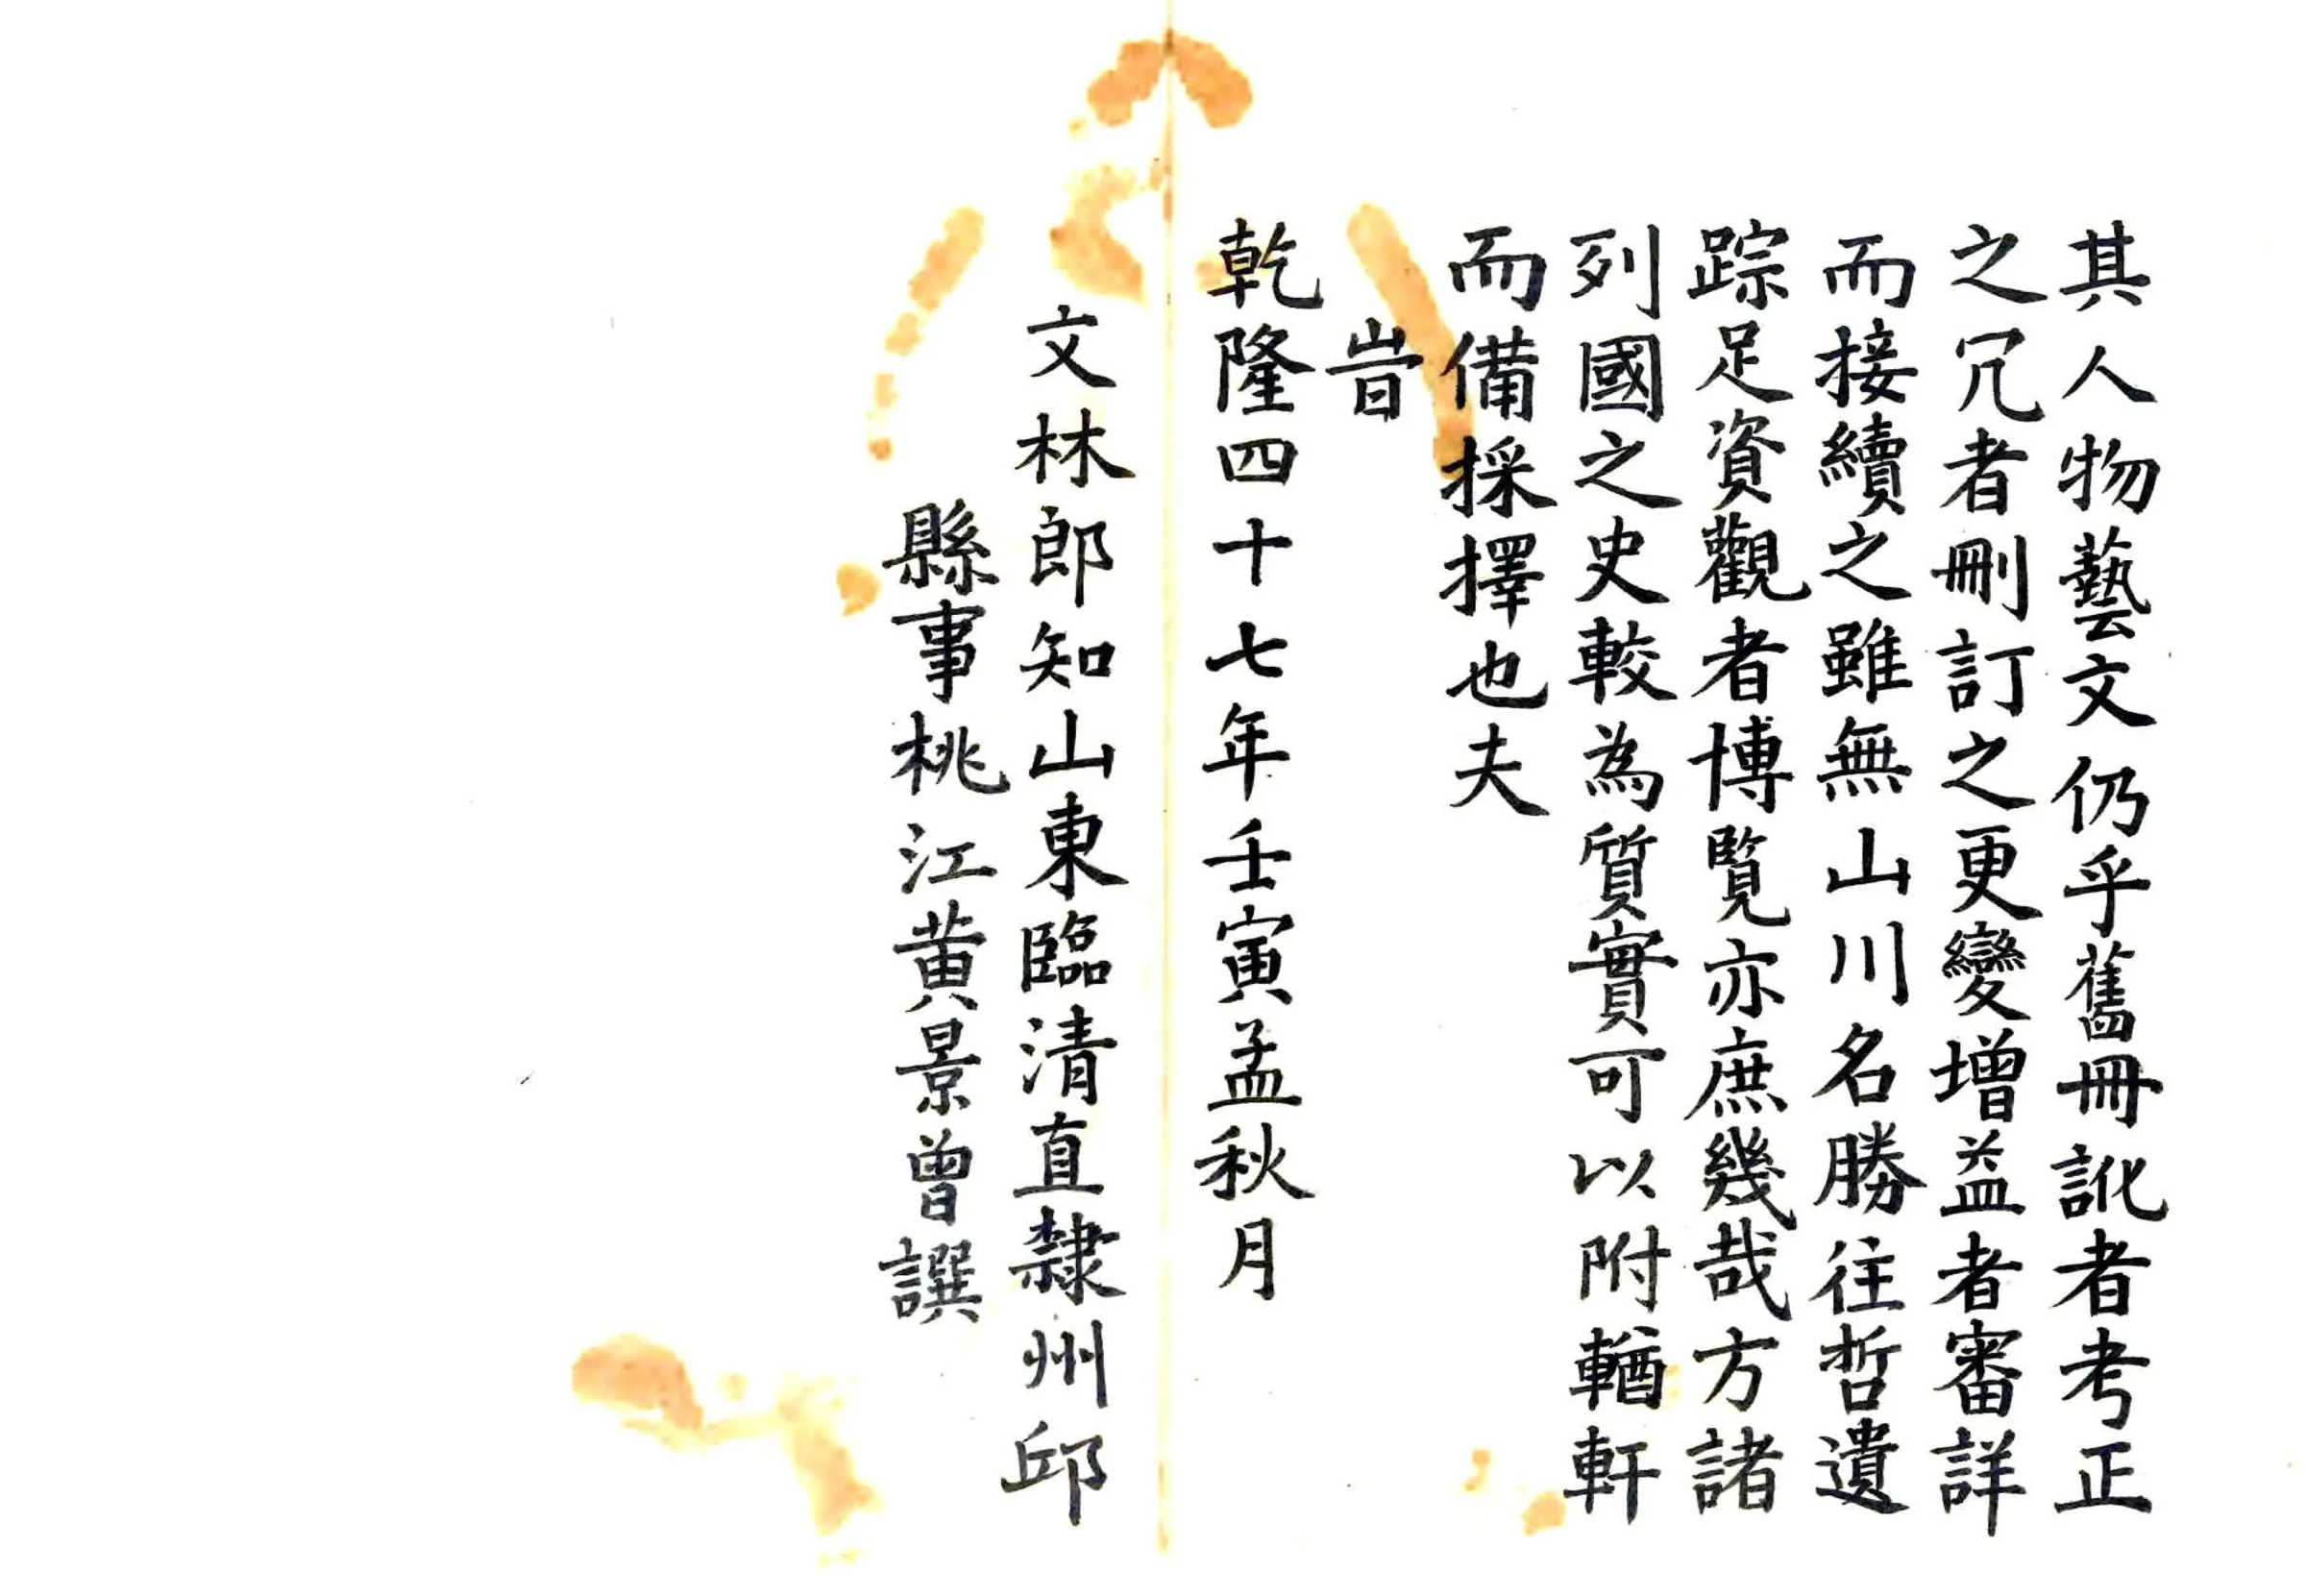 其人物藝文仍乎舊冊訛者考正
之冗者刪訂之更變增益者審詳
而接續之雖無山川名勝往哲遺
踪足資觀者博覧亦庶幾哉方諸
列國之史較為質實可以附輶軒
而備採擇也夫
旹
乾隆四十七年壬寅孟秋月
文林郎知山東臨清直隸州邱
縣事桃江黄景曾譔